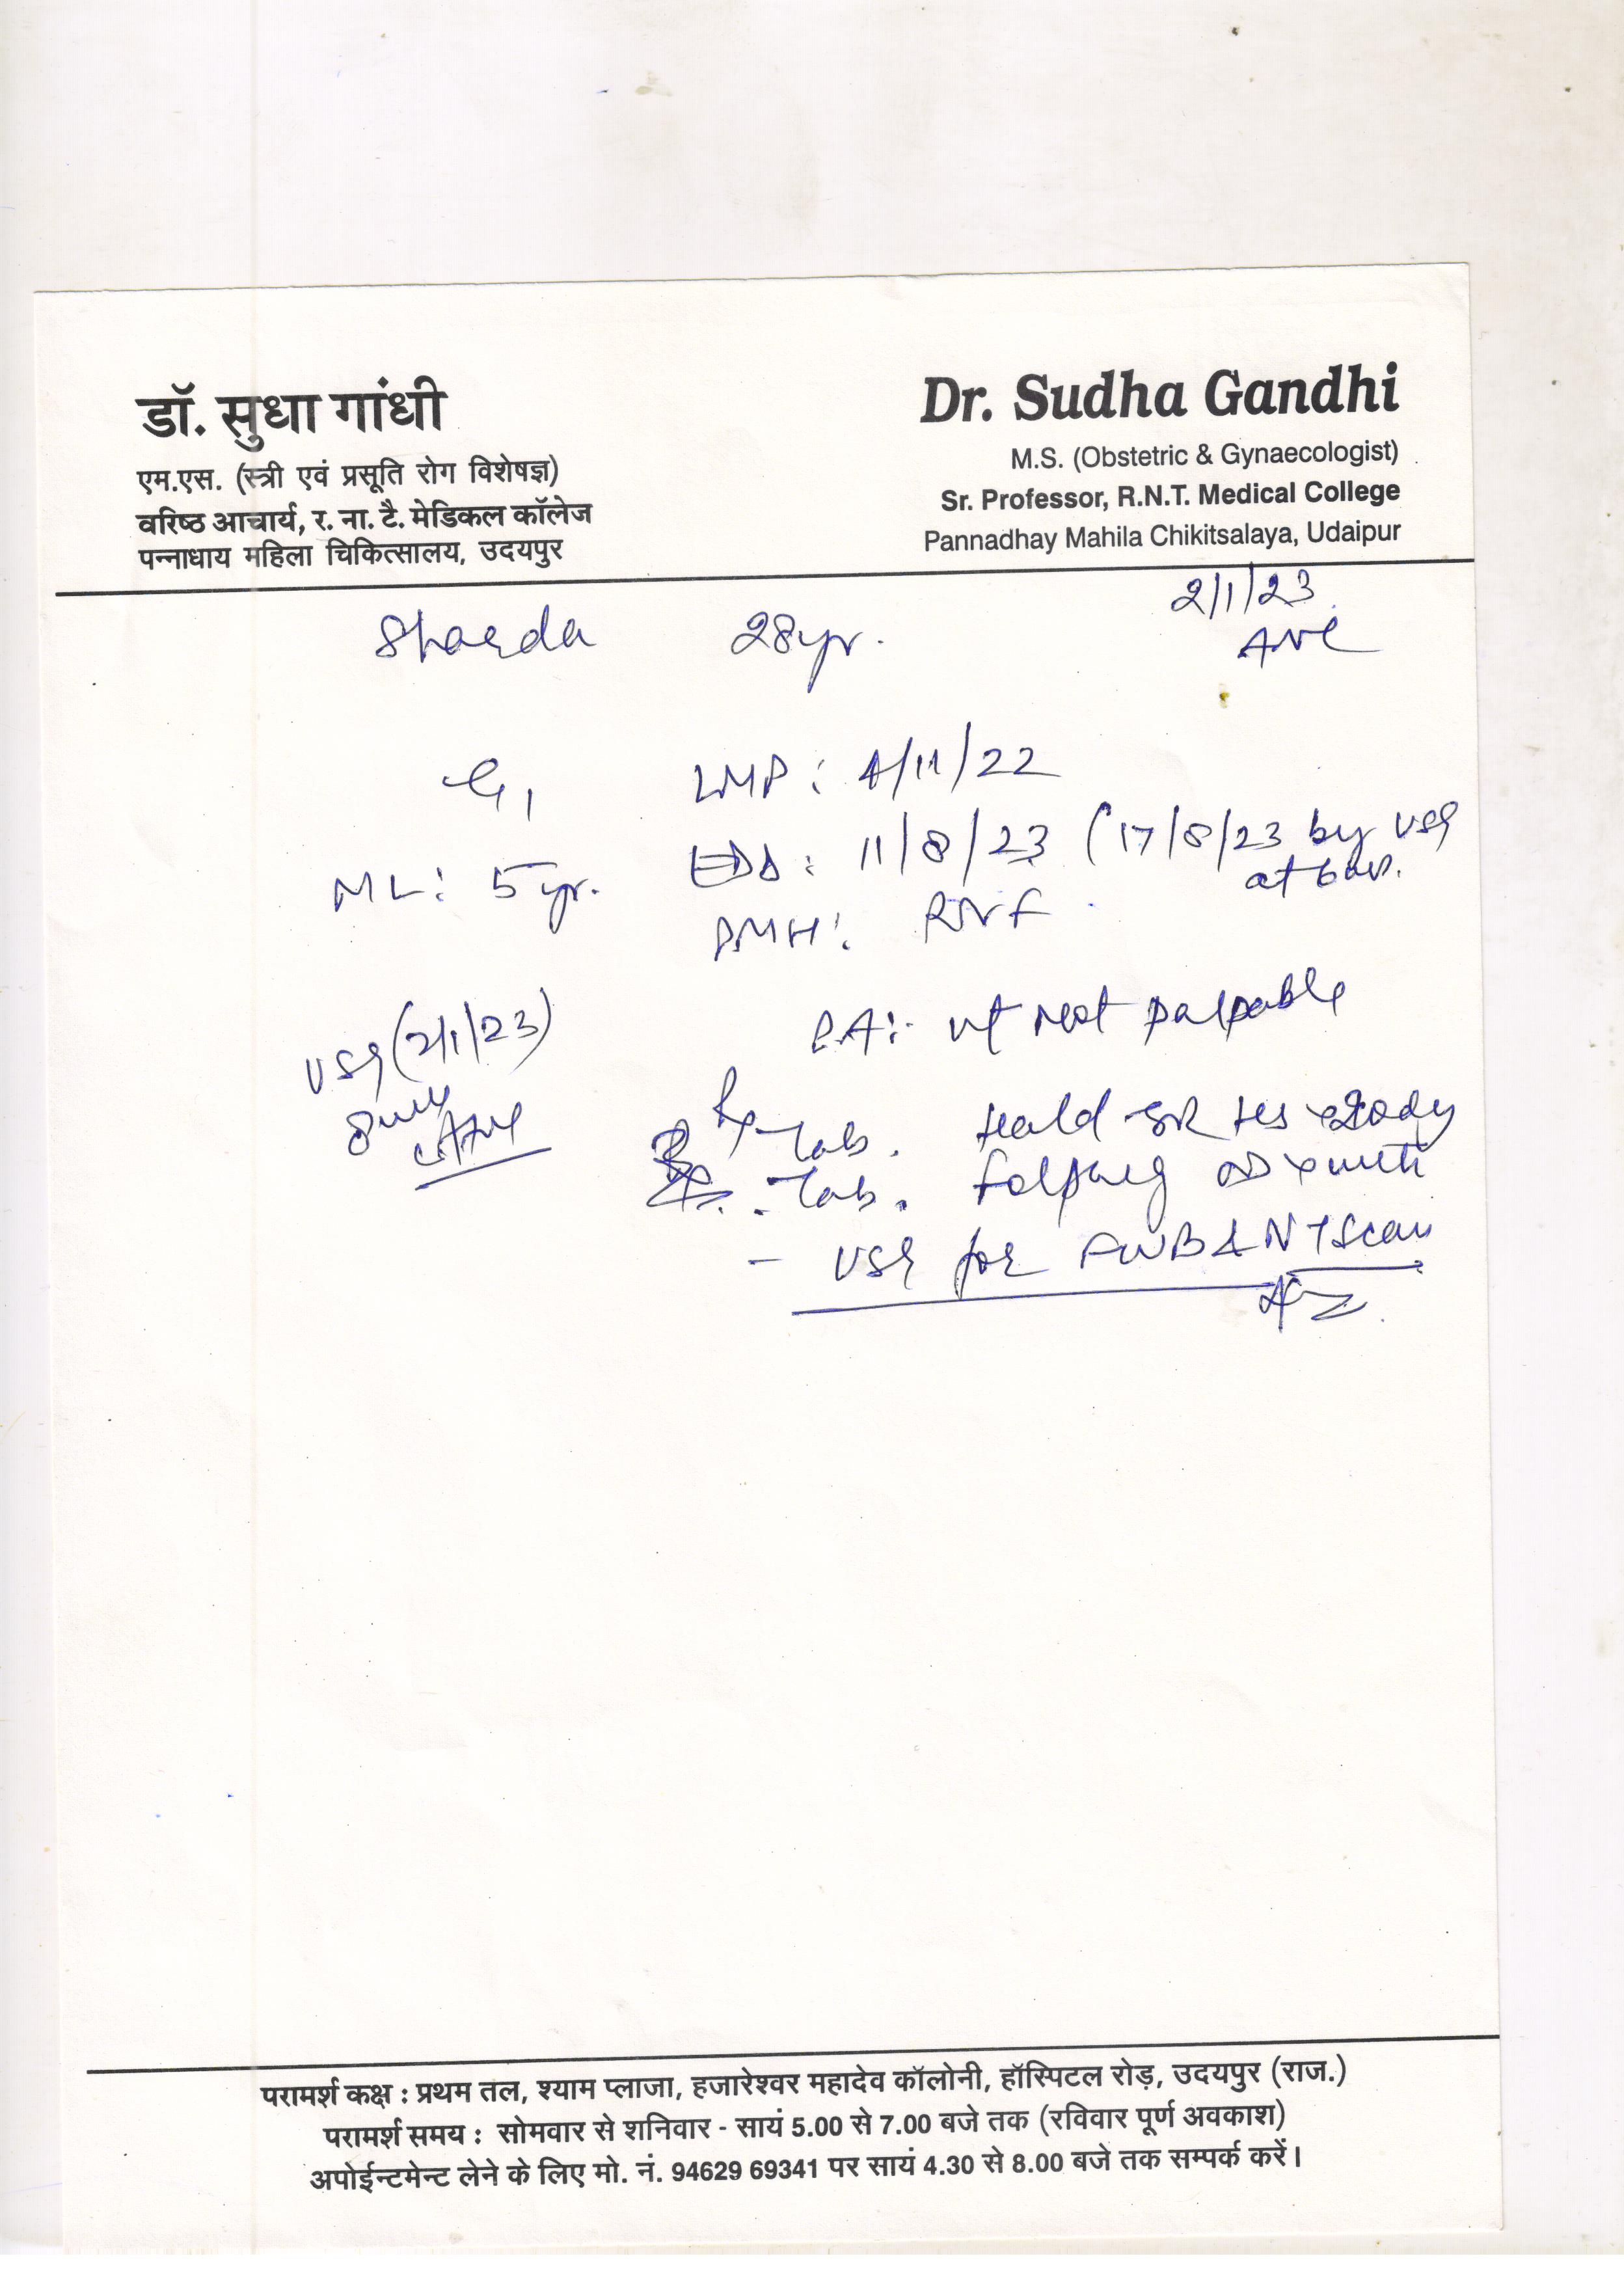 डॉ. सुधा गांधी
एम.एस. (स्त्री एवं प्रसूति रोग विशेषज्ञ)
वरिष्ठ आचार्य, र. ना. टै. मेडिकल कॉलेज
पन्नाधाय महिला चिकित्सालय, उदयपुर
Dr. Sudha Gandhi
M.S. (Obstetric & Gynaecologist)
Sr. Professor, R.N.T. Medical College
Pannadhay Mahila Chikitsalaya, Udaipur
2/1/23
Sharda 28yr. ANC
G1 LMP: 4/11/22
ML: 5 yr. EDD: 11/8/23 (17/8/23 by USG
at 6
PMH:
USG (2/1/23) PA:- ut not palpable
8
Rx - Tab.
- Tab. OD x
- USG for FWB & NT Scan
परामर्श कक्ष : प्रथम तल, श्याम प्लाजा, हजारेश्वर महादेव कॉलोनी, हॉस्पिटल रोड़, उदयपुर (राज.)
परामर्श समय : सोमवार से शनिवार - सायं 5.00 से 7.00 बजे तक (रविवार पूर्ण अवकाश)
अपोईन्टमेन्ट लेने के लिए मो. नं. 94629 69341 पर सायं 4.30 से 8.00 बजे तक सम्पर्क करें।